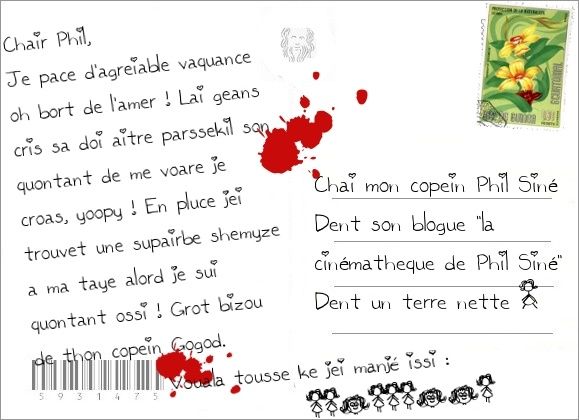 Chair Phil,
Je pace d'agreiable vaquance
oh bort de l'amer ! Lai geans
cris sa doi aitre parssekil son
quontant de me voare je
croas, yoopy ! En pluce jei
trouvet une supairbe shemyze
a ma taye alord je sui
quontant ossi ! Grot bizou
de thon copein Gogod.
5931475
Chai mon copein Phil Siné
Dent son blogue "la
cinématheque de Phil Siné"
Dent un terre nette
Vouala tousse ke jei manjé issi :